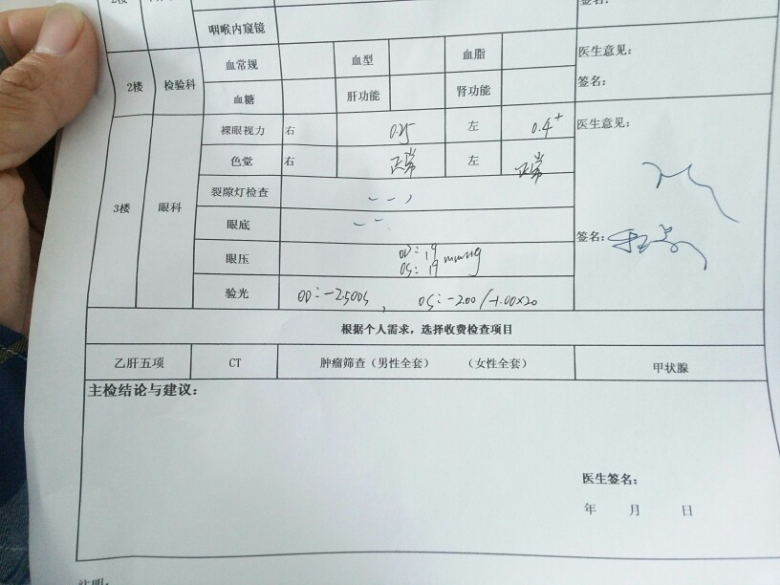 签名:
咽喉内窥镜
2楼 检验科 血常规 血型 血脂 医生意见:
血糖 肝功能 肾功能 签名:
3楼 眼科 裸眼视力 右 0.25 左 0.4+ 医生意见:
色觉 右 正常 左 正常
裂隙灯检查
眼底
签名:
眼压 OD: 19 mmHg
OS: 19
验光 OD: -2.50DS, OS: -2.00/-1.00×20
根据个人需求，选择收费检查项目
乙肝五项 CT 肿瘤筛查（男性全套） （女性全套） 甲状腺
主检结论与建议:
医生签名:
年 月 日